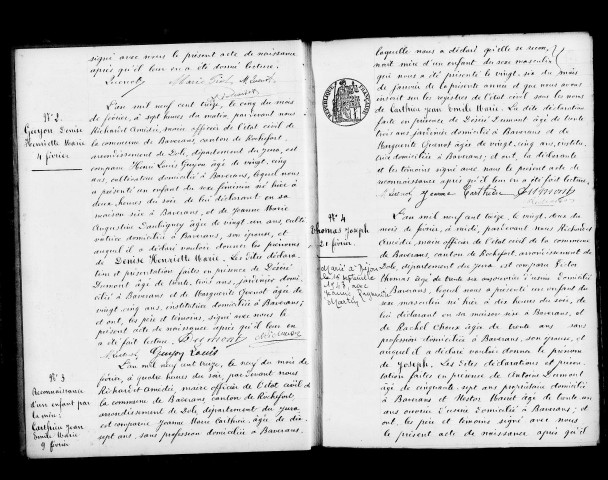 signé avec nous le présent acte de naissance
après qu'il leur en a été donné lecture.
N° 2.
Guyon Denise
Henriette Marie
4 février
L'an mil neuf cent treize, le cinq du mois
de février, à sept heures du matin par devant nous
Richard Amédée, maire officier de l'état civil de
la commune de Baverans, canton de Rochefort,
arrondissement de Dole, département du Jura, est
comparu Henri Louis Guyon âgé de vingt cinq
ans, cultivateur domicilié à Baverans, lequel nous
a présenté un enfant du sexe féminin né hier à
deux heures du soir de lui déclarant en sa
maison sise à Baverans, et de Jeanne Marie
Augustine âgée de vingt un ans culti
vatrice domiciliée à Baverans, son épouse, et
auquel il a déclaré vouloir donner les prénoms
de Denise Henriette Marie. Les dites déclara
tion et présentation faites en présence de Désiré
Dumont âgé de trente trois ans, journalier domi
cilié à Baverans et de Marguerite Grenot âgée de
vingt cinq ans, institutrice domiciliée à Baverans;
et ont, les père et témoins, signé avec nous le
présent acte de naissance après qu'il leur en
a été fait lecture. Dumont
Guyon Louis
N° 3
Reconnaissance
d'un enfant par
la mère:
Carthier Jean
Emile Marie
9 février
L'an mil neuf cent treize, le neuf du mois de
février, à quatre heures du soir, par devant nous
Richard Amédée, maire officier de l'état civil de
la commune de Baverans, canton de Rochefort
arrondissement de Dole, département du Jura
est comparue Jeanne Marie Carthier, âgée de dix
sept ans, sans profession domiciliée à Baverans
laquelle nous a déclaré qu'elle se recon
nait mère d'un enfant du sexe masculin
qui nous a été présenté le vingt six du mois
de janvier de la présente année et que nous avons
inscrit sur les registres de l'état civil sous les noms
de Carthier Jean Emile Marie. La dite déclaration
faite en présence de Désiré Dumont âgé de trente
trois ans journalier domicilié à Baverans et de
Marguerite Grenot âgée de vingt cinq ans, institu
trice domiciliée à Baverans; et ont, la déclarante
et les témoins signé avec nous le présent acte de
reconnaissance après qu'il leur en a été fait lecture.
Jeanne Carthier Dumont
REPUBLIQUE FRANÇAISE
N° 4
Thomas Joseph
21 février.
Marié à Dijon
le 16 septembre
1943 avec
Jeanne
L'an mil neuf cent treize, le vingt deux du
mois de février, à midi, par devant nous Richard
Amédée, maire officier de l'état civil de la commune
de Baverans, canton de Rochefort, arrondissement de
Dole, département du Jura est comparu Victor
Thomas âgé de trente six ans domicilié
à Baverans, lequel nous a présenté un enfant du
sexe masculin né hier à dix heures du soir, de
lui déclarant en sa maison sise à Baverans, et
de Rachel Choux âgée de trente ans sans
profession domiciliée à Baverans, son épouse, et
auquel il a déclaré vouloir donner le prénom
de Joseph. Les dites déclaration et présen
tation faites en présence de Antoine Dumont
âgé de cinquante sept ans propriétaire domicilié
à Baverans et Nestor âgé de trente un
ans ouvrier d'usine domicilié à Baverans; et
ont, les père et témoins signé avec nous
le présent acte de naissance après qu'il